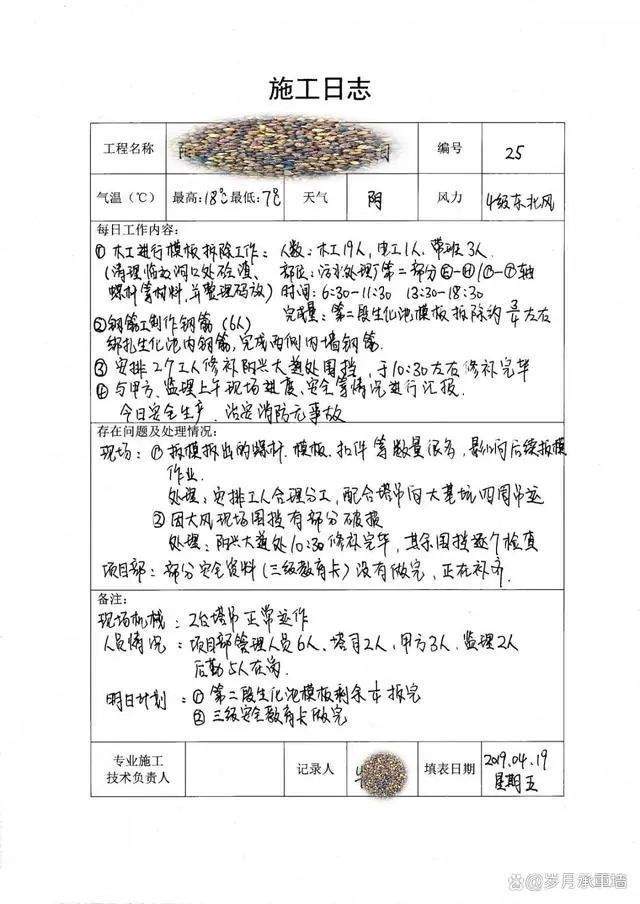 施工日志
工程名称 编号 25
气温（℃） 最高:18℃ 最低:7℃ 天气 阴 风力 4级东北风
每日工作内容:
① 木工进行模板拆除工作: 人数:木工19人,电工1人,带班3人.
(清理临边洞口处砼渣、 部位:污水处理厂第二部分
螺杆等材料,并整理码放) 时间:6:30-11:30 13:30-18:30
完成量:第二段生化池模板拆除约3/4左右
②钢筋工制作钢筋(6人)
绑扎生化池内钢筋,完成西侧内墙钢筋.
③ 安排2个工人修补阳兴大道处围挡,于10:30左右修补完毕
④ 与甲方、监理上午现场进度、安全等情况进行汇报.
今日安全生产、治安消防无事故
存在问题及处理情况:
现场:①拆模拆出的螺杆、模板、扣件等数量很多,影响后续拆模
作业.
处理:安排工人合理分工,配合塔吊向大基坑四周吊运
②因大风现场围挡有部分破损
处理:阳兴大道处10:30修补完毕,其余围挡逐个检查
项目部:部分安全资料(三级教育卡)没有做完,正在补齐.
备注:
现场机械:2台塔吊正常运作
人员情况:项目部管理人员6人、塔司2人、甲方3人、监理2人
后勤5人在岗.
明日计划:①第二段生化池模板剩余1/4拆完
②三级安全教育卡做完
专业施工
技术负责人 记录人 填表日期 2019.04.19
星期五
@岁月承重墙